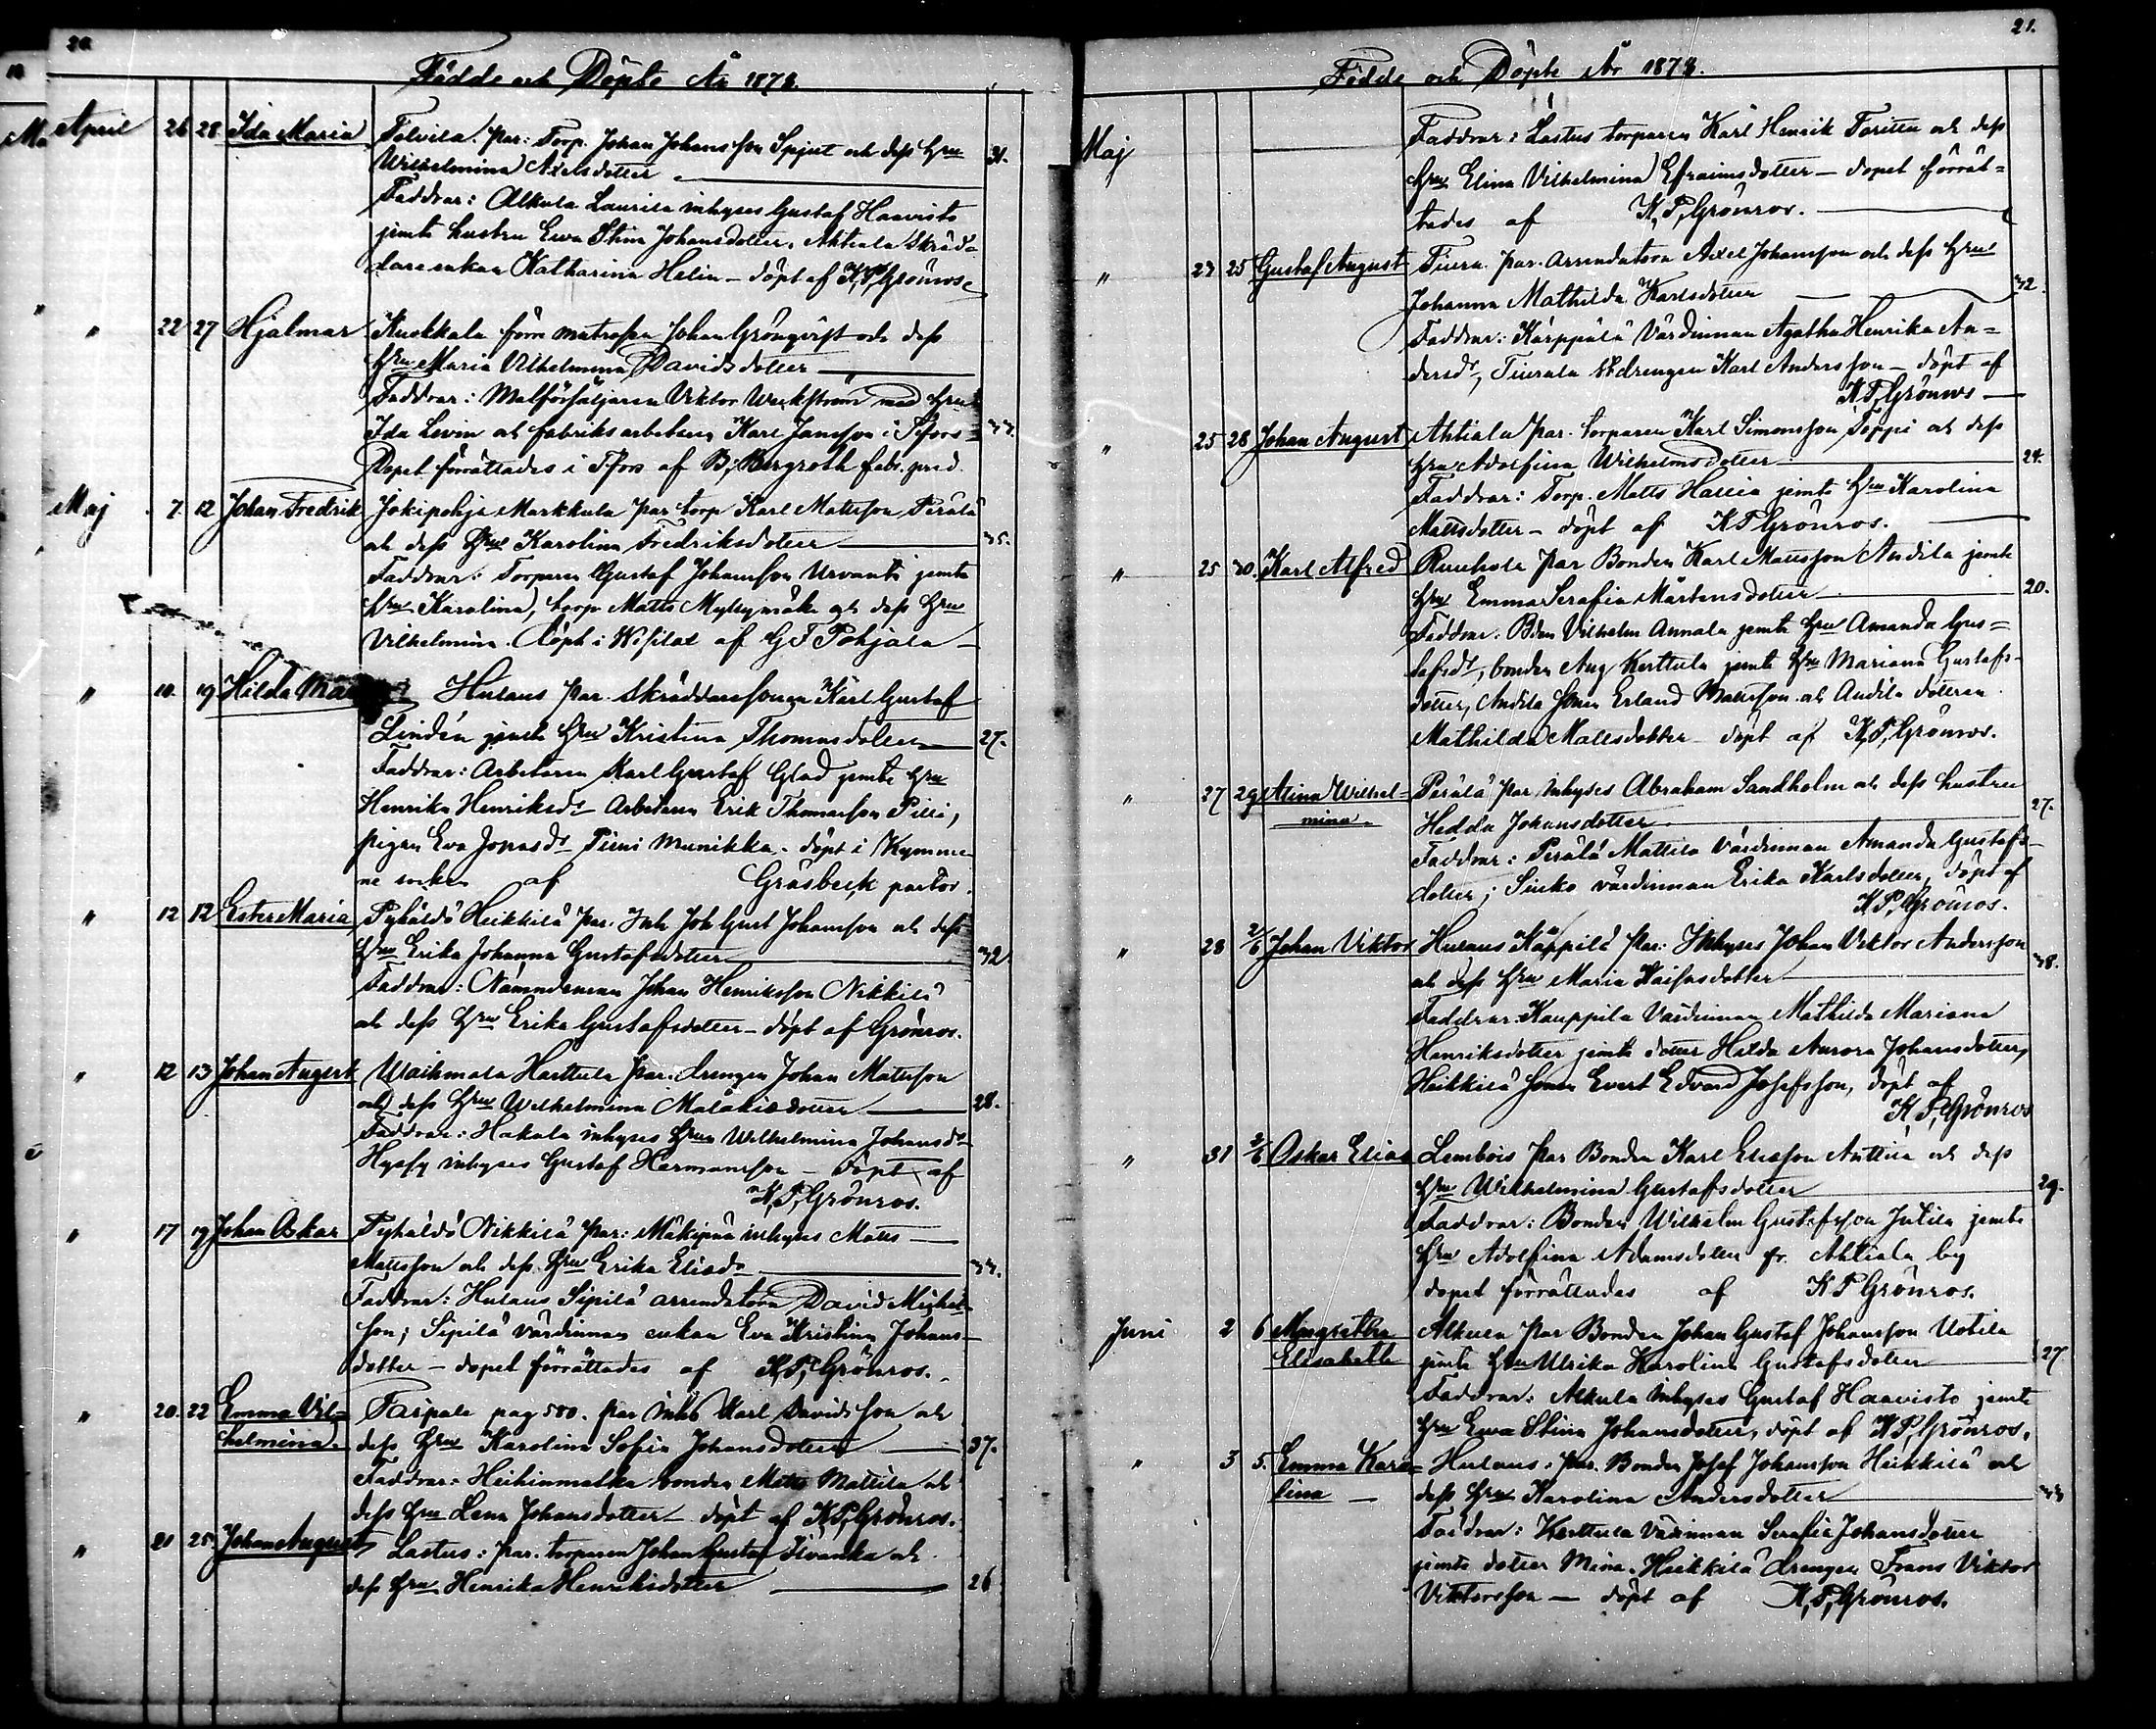 20.
Födde och Döpte År 1878.
April 26 28 Ida Maria Tolvila. Par: Torp. Johan Johansson Spjut och dess Hru 31.
Wilhelmina Axelsdotter
Faddrar: Alkula Laurila inhyses Gustaf Haavisto
jemte hustru Ewa Stina Johansdotter. Ahtiala Skräd-
dare enkan Katharina Helin – döpt af K,P, Grönros
" 22 27 Hjalmar Kuokkala förre matrosen Johan Grönqvist och dess
Hru Maria Vilhelmina Davidsdotter 33.
Faddrar: Viktor med Hru
Ida Levin och fabriksarbetaren Karl Jansson i T:fors
Dopet förrättades i T:fors af B, Bergroth fabr. pred.
Maj 7 12 Johan Fredrik Jokipohja Markkula par torp Karl Matsson Perälä
och dess Hru Karolina Fredriksdotter 35.
Faddrar: Torparen Gustaf Johansson Urvanti jemte
Hru Karolina, torp Matts Myllymäki och dess Hru
Vilhelmina. Döpt i af G F Pohjala
" 10. 19 Hilda Hulaus par. skräddaresonen Karl Gustaf
Lindén jemte Hru Kristina Thomasdotter 27.
Faddrar: Arbetaren Karl Gustaf Glad jemte Hru
Henrika Henriksdr Arbetaren Erik Thomasson Pilli,
pigan Eva Jonasdr Piini Munikka. döpt i Kymme-
ne socken af Gräsbeck pastor.
" 12 12 Ester Maria Pyhäldö Heikkilä par. Inh Joh Gust Johansson och dess
Hru Erika Johanna Gustafsdotter 32
Faddrar: Nämndeman Johan Henriksson Nikkilä
och dess Hru Erika Gustafsdotter – döpt af Grönros.
" 12 13 Johan August Waihmala Harttula par. drengen Johan Matsson
och dess Hru Wilhelmina Malakiasdotter 28.
Faddrar: Hakala inhyses Hrun Wilhelmina Johansdr
Hyssy inhyses Gustaf Hermansson – döpt af
K, P, Grönros.
" 17 19 Johan Oskar Pyhäldö Nikkilä par: Mäkipää inhyses Matts
Mattsson och dess Hru Erika Eliasdr 33.
Faddrar: Hulaus Sipilä arrendatorn David Michels-
son; Sipilä värdinnan enkan Eva Kristina Johans-
dotter – dopet förrättades af K,P, Grönros.
" 20. 22 Emma Vil- Taipale pag 580. par inhs Karl Davidsson och
helmina. dess Hru Karolina Sofia Johansdotter 37.
Faddrar: Heihinmatka bonden Matts Mattila och
dess Hru Lena Johansdotter – döpt af K,P, Grönros.
" 21 25. Johan August Lastus: par. torparen Johan Gustaf Ilvanka och
dess Hru Henrika Henriksdotter 26
21.
Födde och Döpte År 1878.
Maj Faddrar: Lastus torparen Karl Henrik Torilla och dess
Hru Elina Vilhelmina Efraimsdotter – dopet förrät-
tades af K,P, Grönros.
" 23 25 Gustaf August Tiura. Par. Arrendatorn Axel Johansson och dess Hru 32.
Johanna Mathilda Karlsdotter
Faddrar: Kärppälä Värdinnan Agatha Henrika An-
dersdr, Tiurala drengen Karl Andersson – döpt af
K P, Grönros
" 25 28 Johan August Ahtiala par. torparen Karl Simonsson Teppi och dess
Hru Adolfina Wilhelmsdotter 24.
Faddrar: Torp. Matts Hallia jemte Hru Karolina
Mattsdotter – döpt af K P Grönros.
" 25 30. Karl Alfred Ruuhola par Bonden Karl Mattsson Andila jemte
Hru Emma Serafia Mårtensdotter 20.
Faddrar: Bdn Vilhelm Annala jemte Hru Amanda Gus-
tafsdr, bonden Aug Kerttula jemte Hru Mariana Gustafs-
dotter, Andila sonen Erland Mattsson och Andila dottren
Mathilda Mattsdotter döpt af K,P, Grönros.
" 27 29 Alina Wilhel- Perälä par inhyses Abraham Sandholm och dess hustru
mina. Hedda Johansdotter 27.
Faddrar: Perälä Mattila värdinnan Amanda Gustafs-
dotter; Sinko värdinnan Erika Karlsdotter, döpt af
K, P, Grönros.
" 28 2/6 Johan Viktor Hulaus Käppilä par: Inhyses Johan Viktor Andersson
och dess Hru Maria Kaisasdotter 38.
Faddrar: Kauppila värdinnan Mathilda Mariana
Henriksdotter jemte dotter Hilda Aurora Johansdotter,
Heikkilä sonen Evert Edvard Josefsson, döpt af
K, P, Grönros
" 31 2/6 Oskar Elias Lembois par Bonden Karl Eliasson Anttila och dess
Hru Wilhelmina Gustafsdotter 29.
Faddrar: Bonden Wilhelm Gustafsson Jutila jemte
Hru Adolfina Adamsdotter fr. Ahtiala by
dopet förrättades af K P Grönros.
Juni 2 6 Margretha Alkula par Bonden Johan Gustaf Johansson Uotila
Elisabeth jemte Hru Ulrika Karolina Gustafsdotter 27
Faddrar: Alkula inhyses Gustaf Haavisto jemte
Hru Ewa Stina Johansdotter, döpt af K P, Grönros.
" 3 5. Emma Karo- Hulaus: par. Bonden Josef Johansson Heikkilä och
lina dess Hru Karolina Andersdotter 33
Faddrar: Kerttula värdinnan Serafia Johansdotter
jemte dotter Mina. Heikkilä drengen Frans Viktor
Viktorsson – döpt af K, P, Grönros.